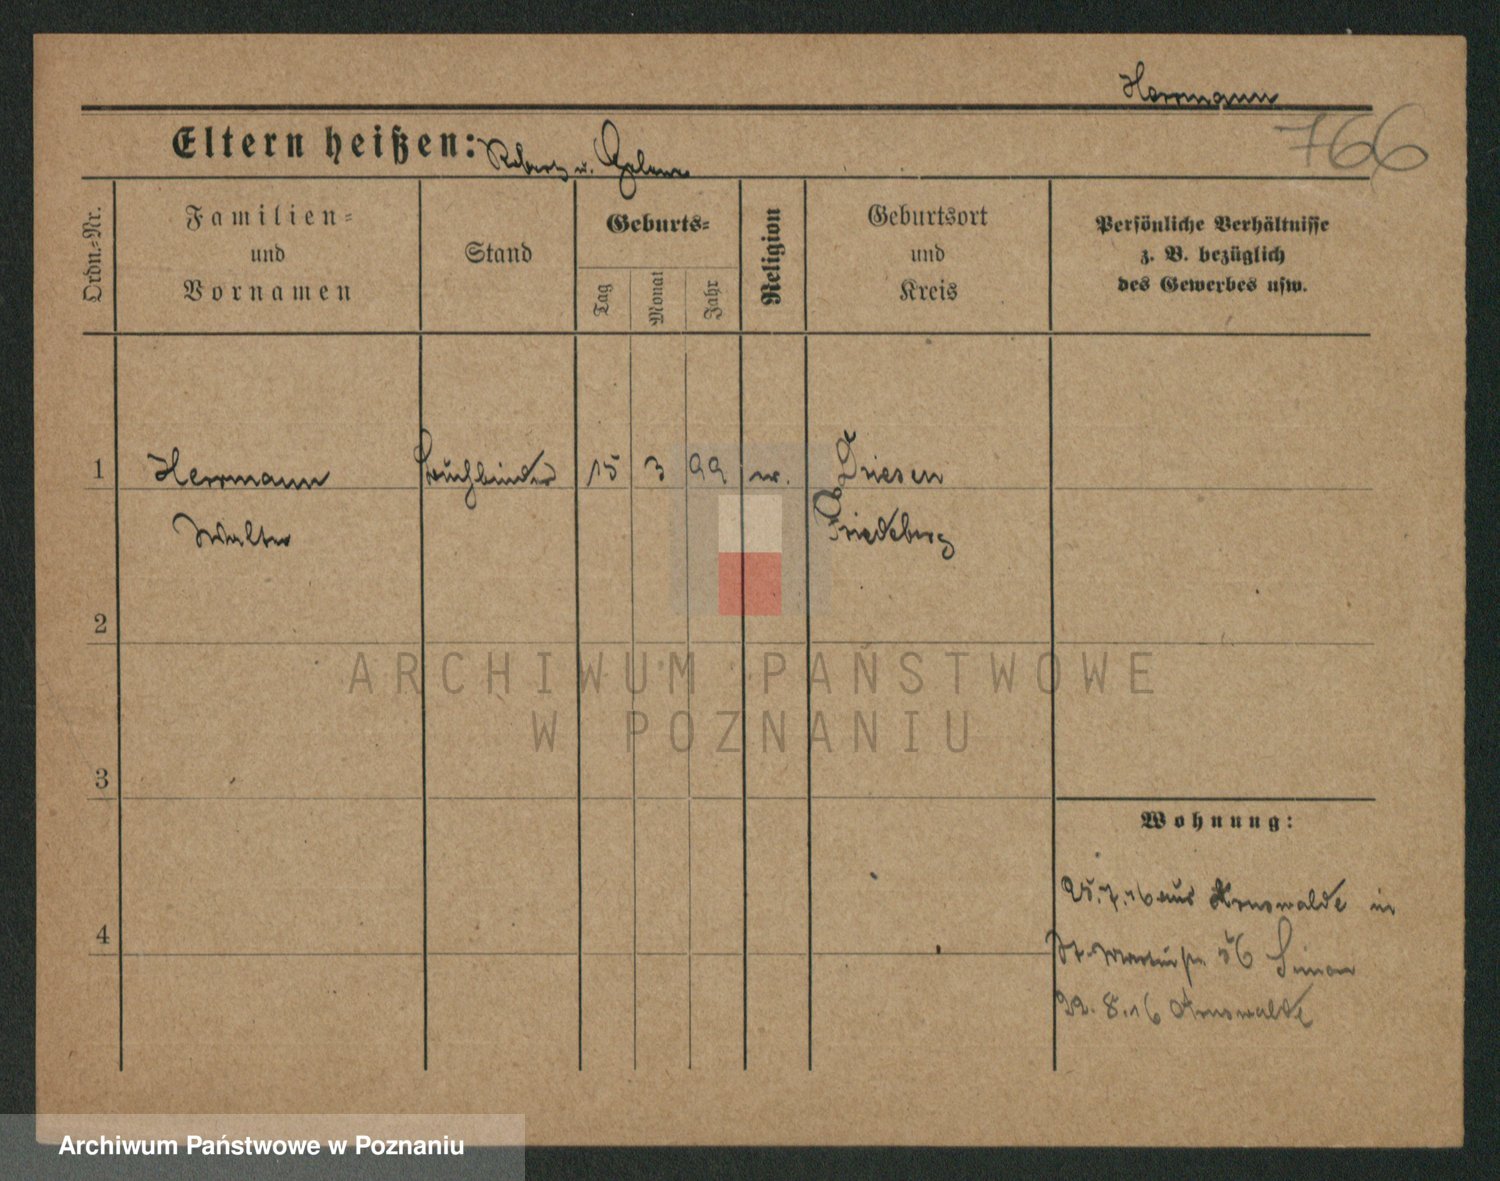 Herrmann
766
Eltern heißen: Robert u. Helene
Ordn.-Nr.
Familien-
und
Vornamen
Stand
Geburts-
Tag
Monat
Jahr
Religion
Geburtsort
und
Kreis
Persönliche Verhältnisse
z. B. bezüglich
des Gewerbes usw.
1 Herrmann Buchbinder 15 3 99 ev. Driesen
Walter Friedeberg
2
3
4
ARCHIWUM PAŃSTWOWE
W POZNANIU
Wohnung:
25.7.16 aus Arnswalde in
St. Martinstr. 56 Simon
22.8.16 Arnswalde
Archiwum Państwowe w Poznaniu